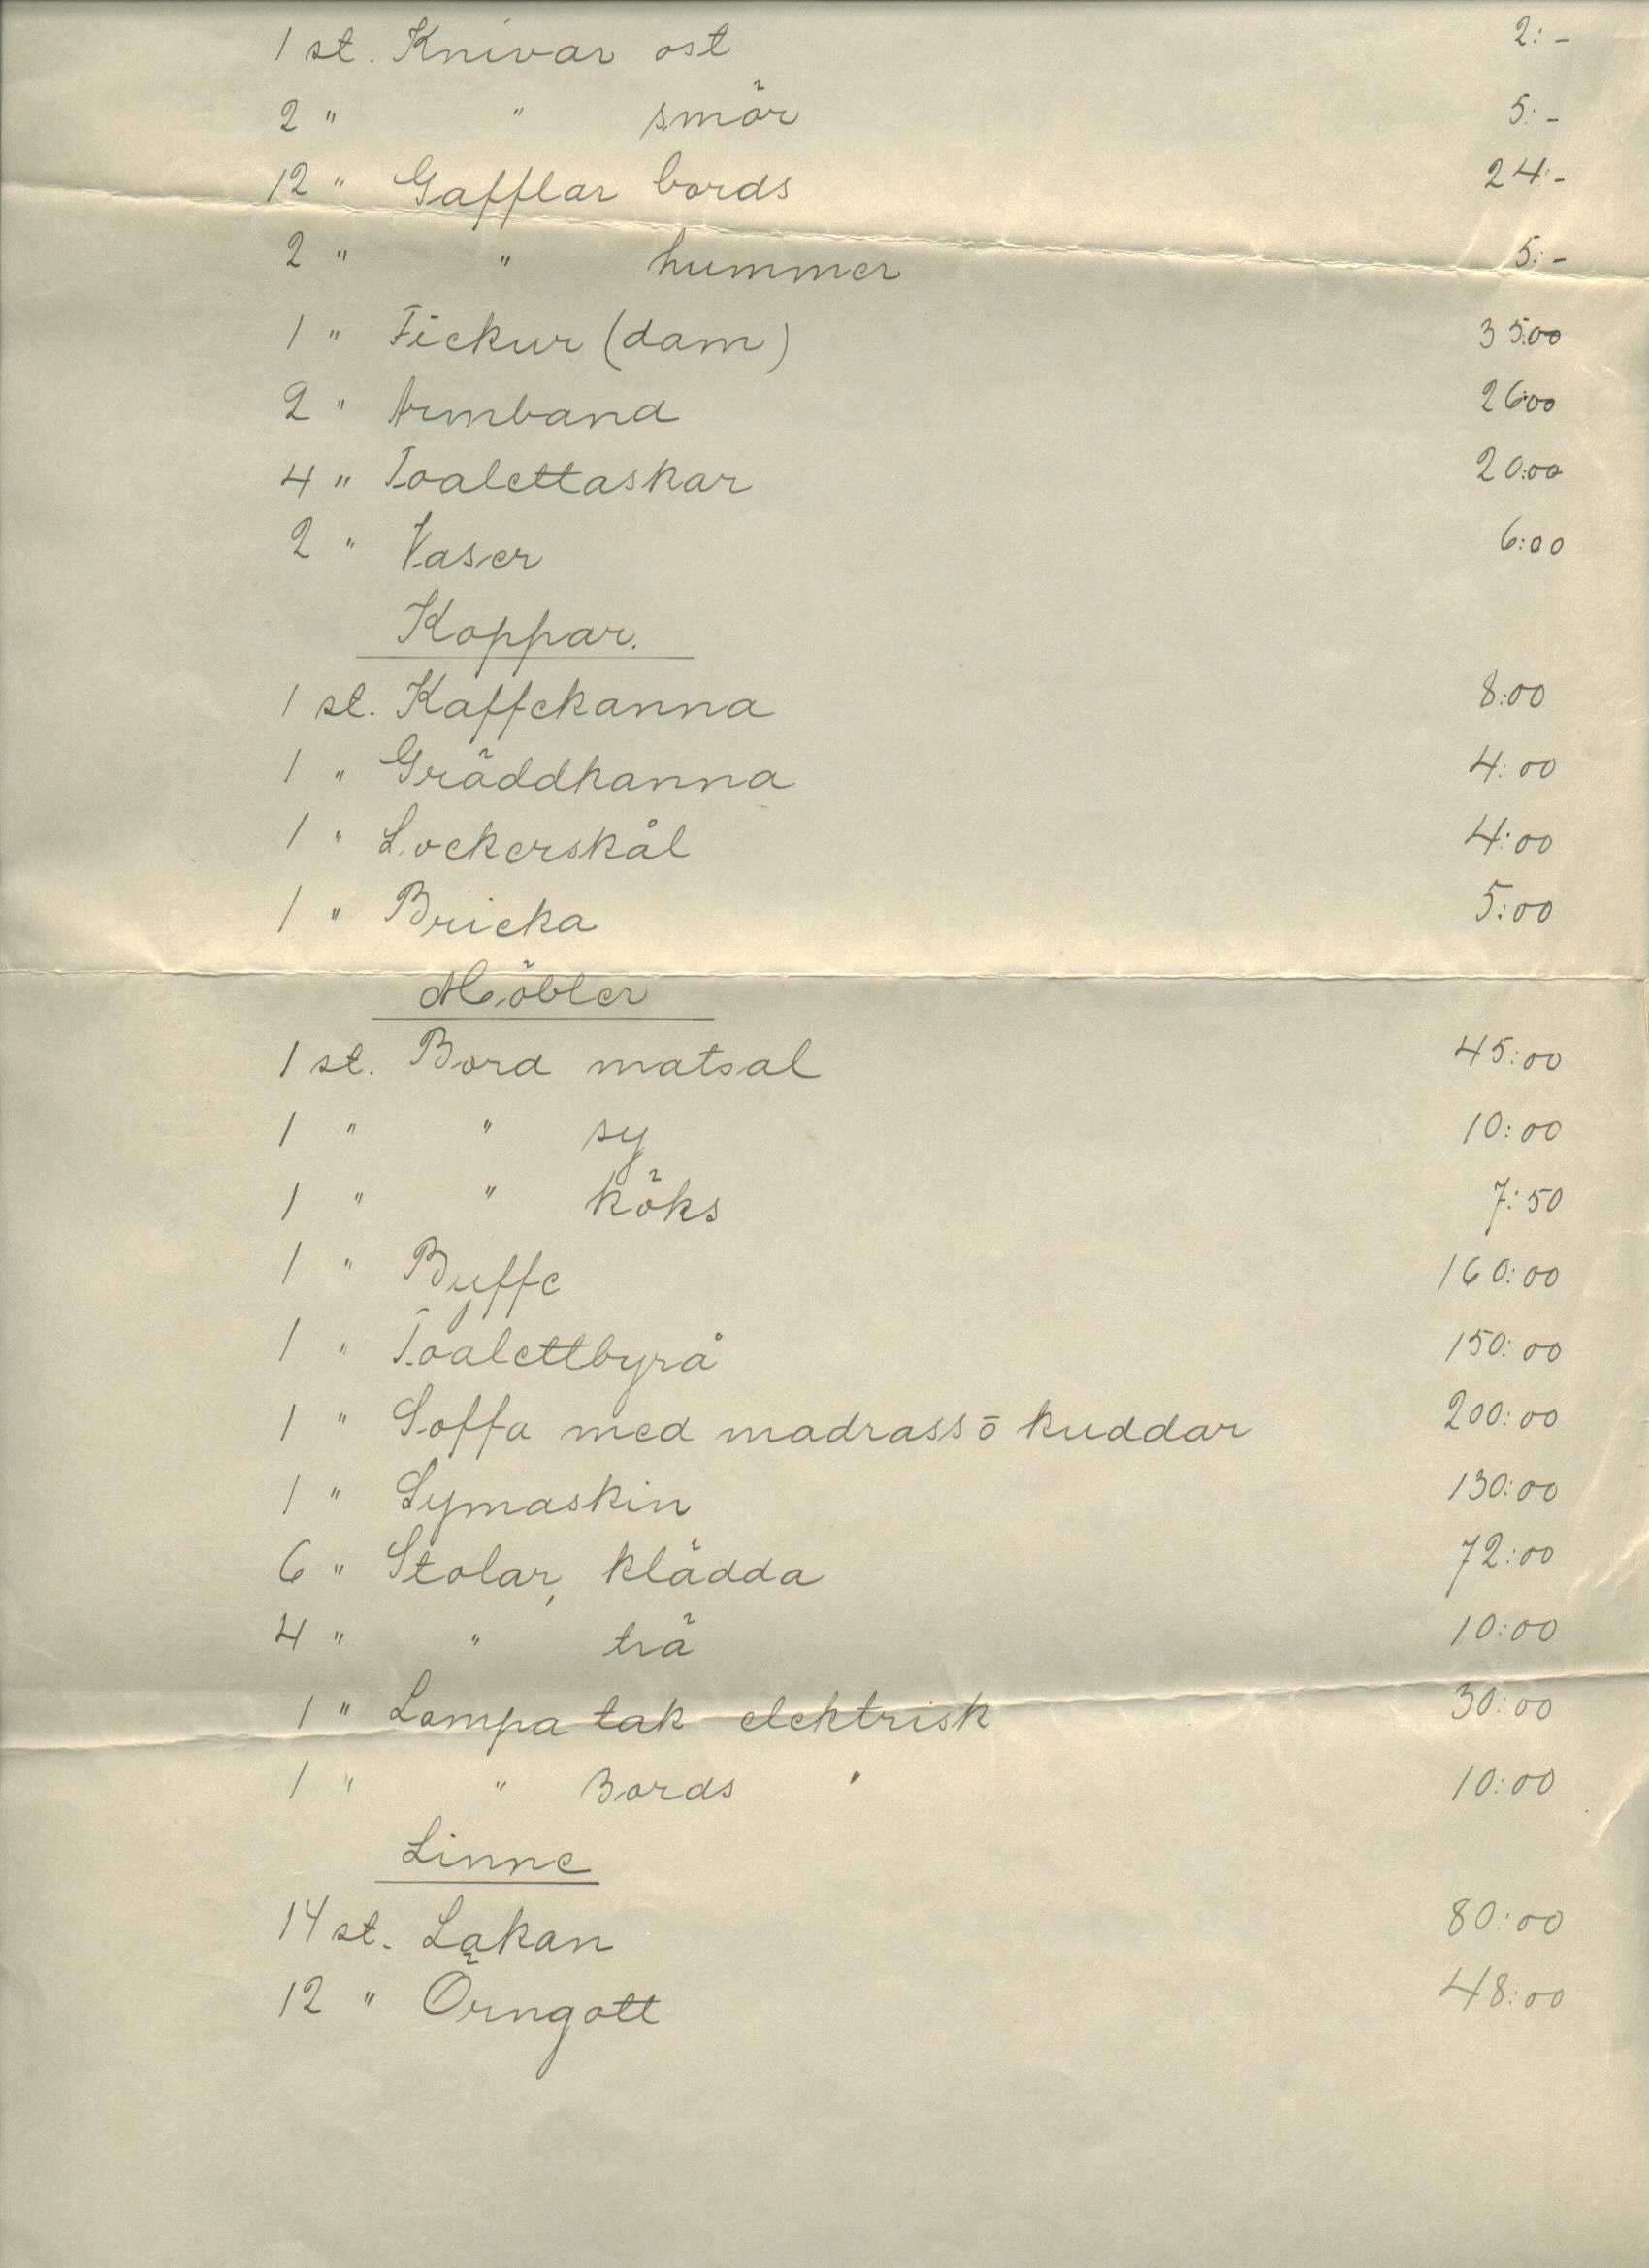 1 st. Knivar ost 2:-
2 " " smör 5:-
12 " Gafflar bords 24:-
2 " " hummer 5:-
1 " Fickur (dam) 35:00
2 " Armband 26:00
4 " Toalettaskar 20:00
2 " Vaser 6:00
Koppar.
1 st. Kaffekanna 8:00
1 " Gräddkanna 4:00
1 " Sockerskål 4:00
1 " Bricka 5:00
Möbler
1 st. Bord matsal 45:00
1 " " sy 10:00
1 " " köks 7:50
1 " Buffe 160:00
1 " Toalettbyrå 150:00
1 " Soffa med madrass ō kuddar 200:00
1 " Symaskin 130:00
6 " Stolar, klädda 72:00
4 " " trä 10:00
1 " Lampa tak elektrisk 30:00
1 " " Bords " 10:00
Linne
14 st. Lakan 80:00
12 " Örngott 48:00